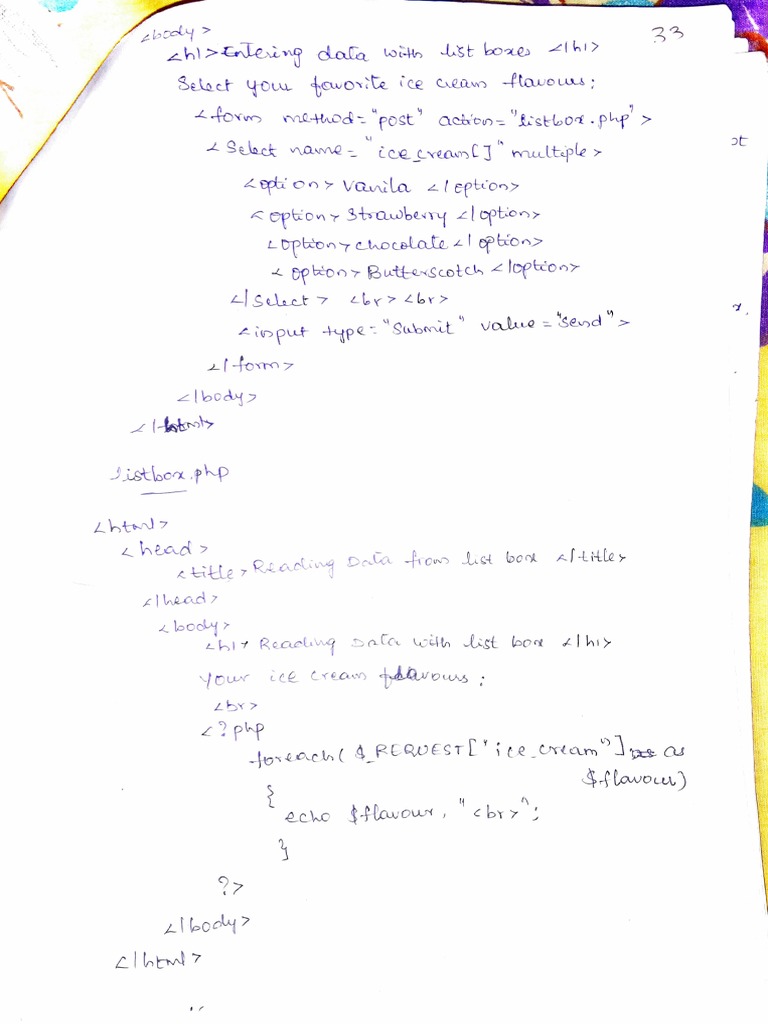 33
<body>
<h1> Entering data with list boxes </h1>
Select your favorite ice cream flavours;
<form method="post" action="listbox.php">
<Select name="ice_cream[]" multiple>
<option> Vanila </option>
<option> Strawberry </option>
<option> chocolate </option>
<option> Butterscotch </option>
</Select> <br><br>
<input type="Submit" value="send">
</form>
</body>
</html>
listbox.php
<html>
<head>
<title> Reading Data from list box </title>
</head>
<body>
<h1> Reading Data with list box </h1>
Your ice cream flavours;
<br>
<?php
foreach( $_REQUEST["ice_cream"] as
$flavour)
{
echo $flavour, "<br>";
}
?>
</body>
</html>